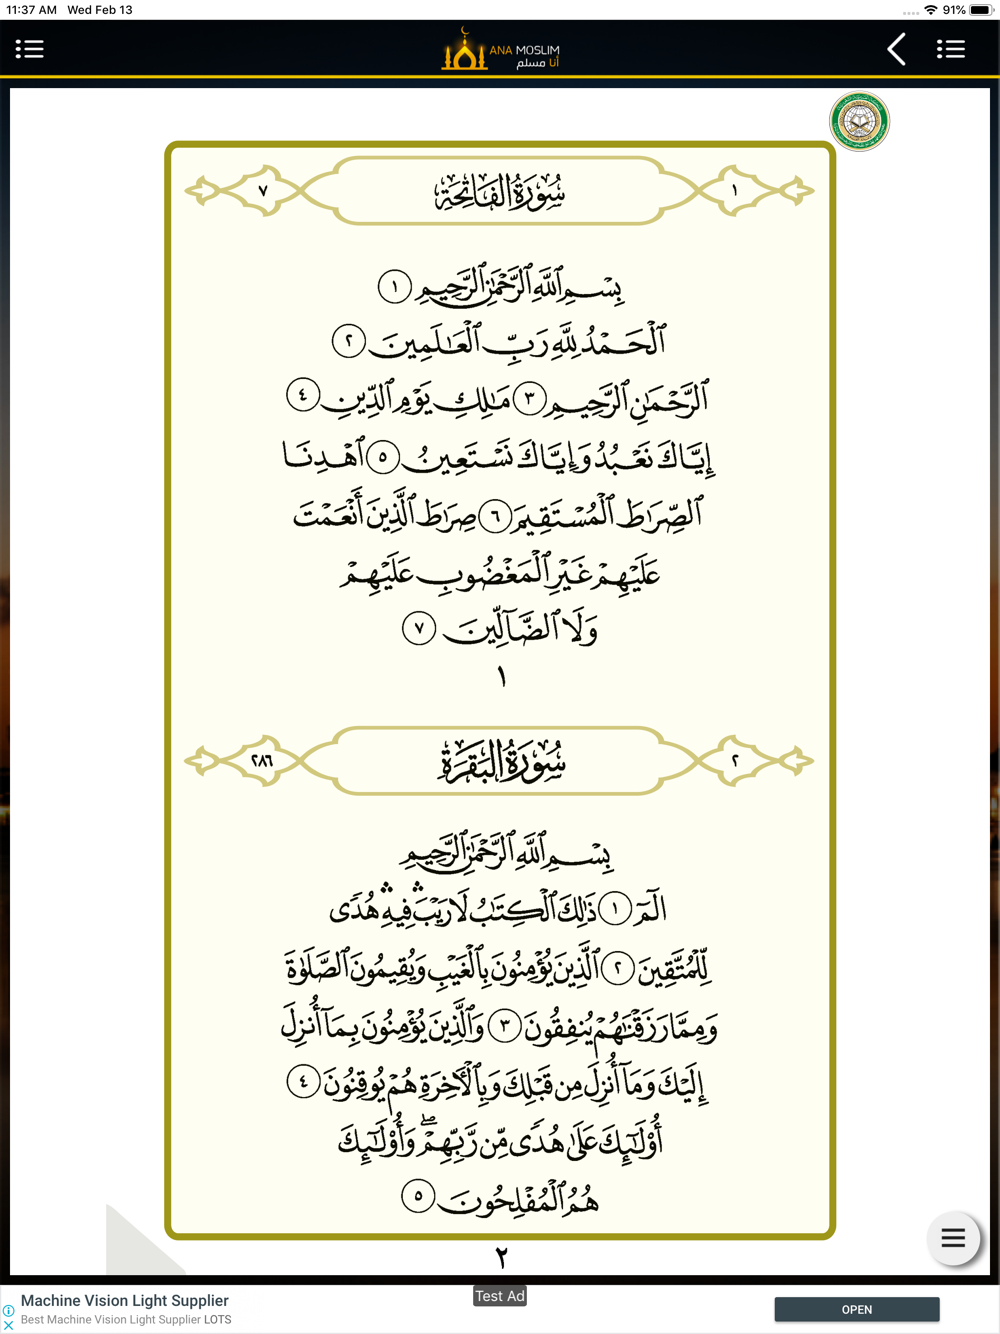 11:37 AM Wed Feb 13
91%
ANA MOSLIM
أنا مسلم
١ سُورَةُ الفَاتِحَةِ ٧
بِسْمِ ٱللَّهِ ٱلرَّحْمَٰنِ ٱلرَّحِيمِ ١
ٱلْحَمْدُ لِلَّهِ رَبِّ ٱلْعَـٰلَمِينَ ٢
ٱلرَّحْمَـٰنِ ٱلرَّحِيمِ ٣ مَـٰلِكِ يَوْمِ ٱلدِّينِ ٤
إِيَّاكَ نَعْبُدُ وَإِيَّاكَ نَسْتَعِينُ ٥ ٱهْدِنَا
ٱلصِّرَٰطَ ٱلْمُسْتَقِيمَ ٦ صِرَٰطَ ٱلَّذِينَ أَنْعَمْتَ
عَلَيْهِمْ غَيْرِ ٱلْمَغْضُوبِ عَلَيْهِمْ
وَلَا ٱلضَّآلِّينَ ٧
١
٢ سُورَةُ البَقَرَةِ ٢٨٦
بِسْمِ ٱللَّهِ ٱلرَّحْمَٰنِ ٱلرَّحِيمِ
الٓمٓ ١ ذَٰلِكَ ٱلْكِتَـٰبُ لَا رَيْبَ ۛ فِيهِ ۛ هُدًى
لِّلْمُتَّقِينَ ٢ ٱلَّذِينَ يُؤْمِنُونَ بِٱلْغَيْبِ وَيُقِيمُونَ ٱلصَّلَوٰةَ
وَمِمَّا رَزَقْنَـٰهُمْ يُنفِقُونَ ٣ وَٱلَّذِينَ يُؤْمِنُونَ بِمَآ أُنزِلَ
إِلَيْكَ وَمَآ أُنزِلَ مِن قَبْلِكَ وَبِٱلْـَٔاخِرَةِ هُمْ يُوقِنُونَ ٤
أُو۟لَـٰٓئِكَ عَلَىٰ هُدًى مِّن رَّبِّهِمْ ۖ وَأُو۟لَـٰٓئِكَ
هُمُ ٱلْمُفْلِحُونَ ٥
٢
Test Ad
Machine Vision Light Supplier
Best Machine Vision Light Supplier LOTS
OPEN